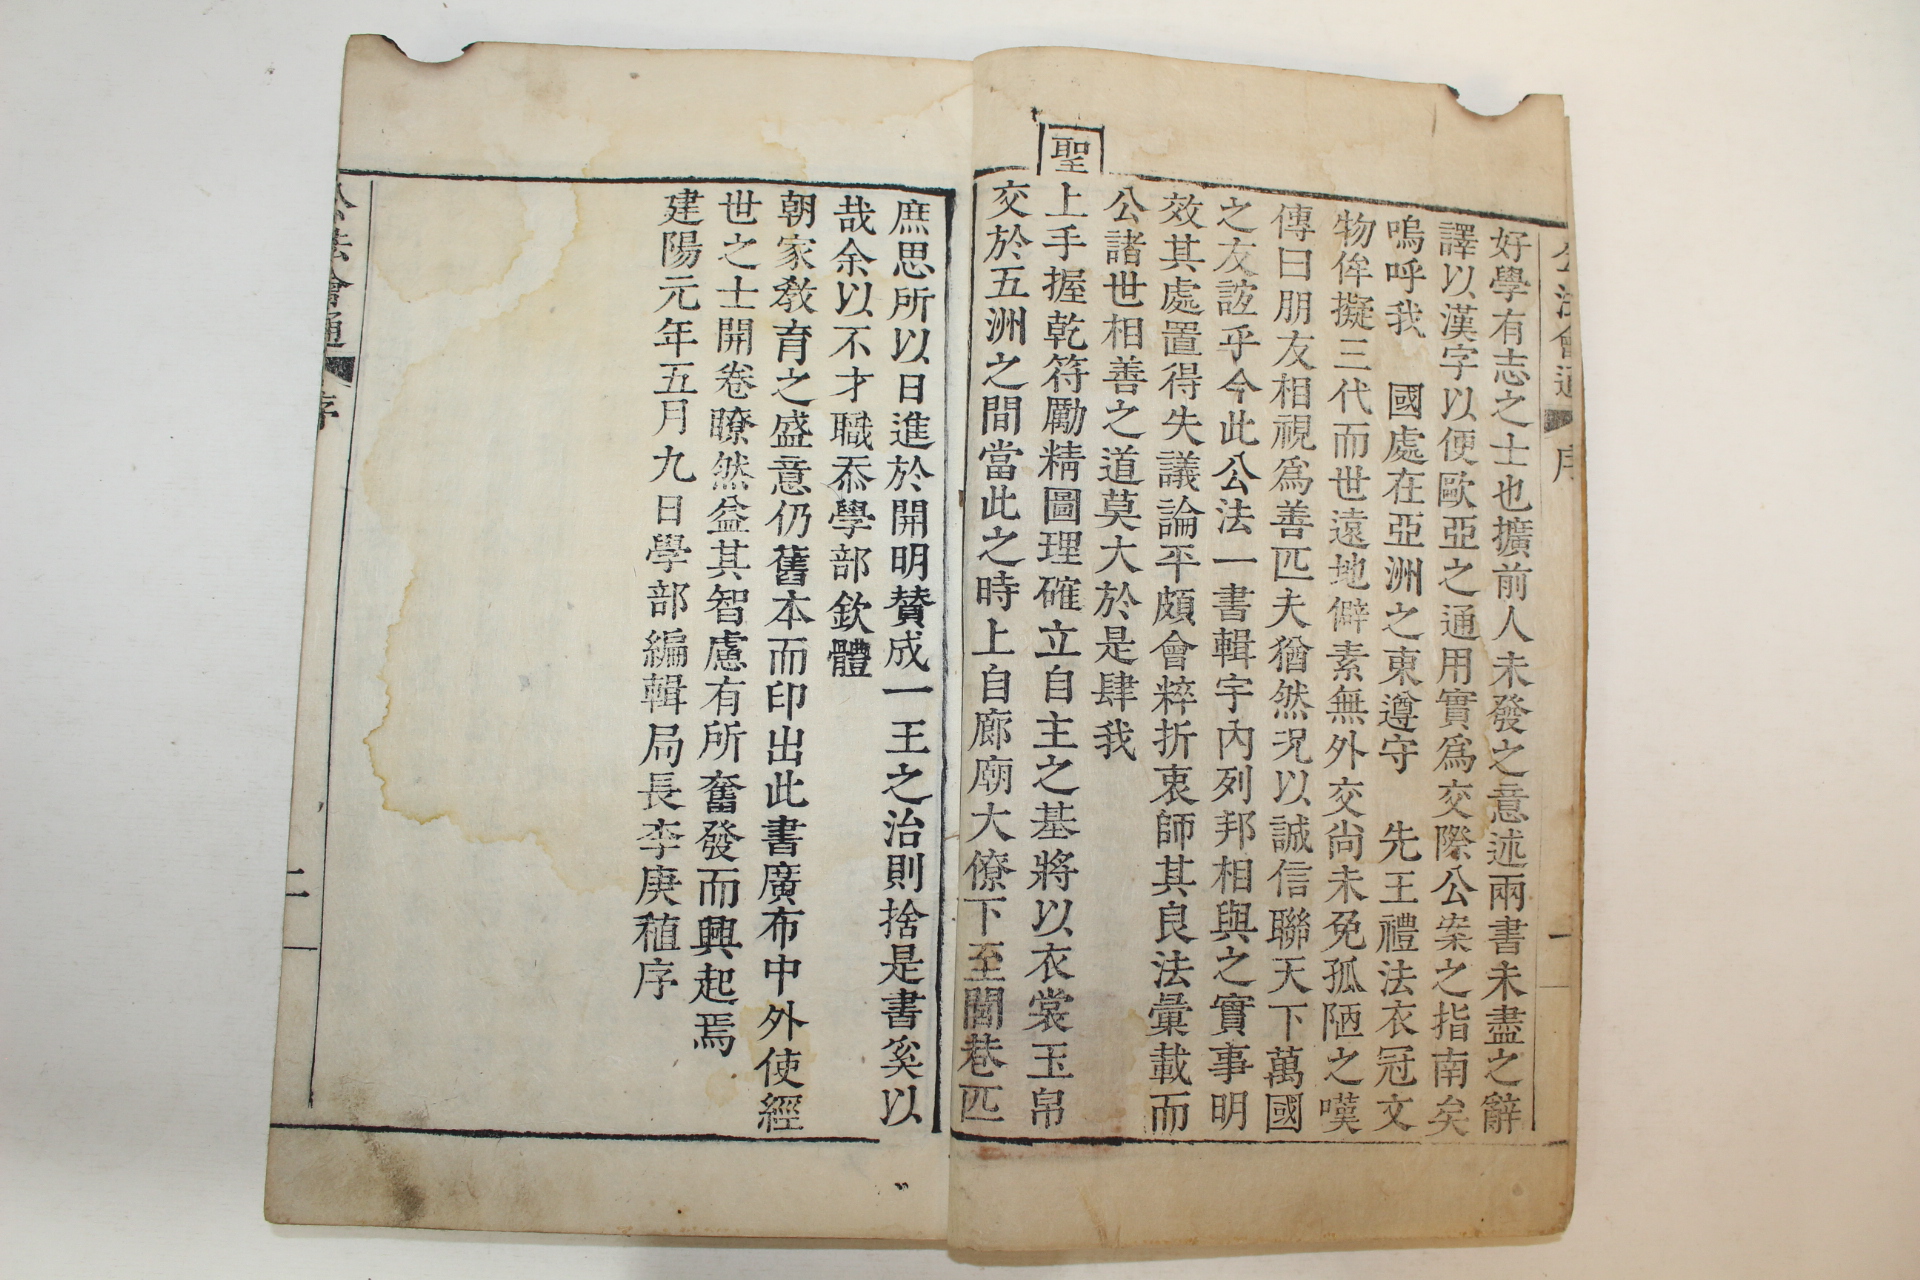 公法會通 序 一
好學有志之士也擴前人未發之意述兩書未盡之辭
譯以漢字以便歐亞之通用實爲交際公案之指南矣
嗚呼我 國處在亞洲之東遵守 先王禮法衣冠文
物侔擬三代而世遠地僻素無外交尙未免孤陋之嘆
傳曰朋友相視爲善匹夫猶然况以誠信聯天下萬國
之友誼乎今此公法一書輯宇內列邦相與之實事明
效其處置得失議論平頗會粹折衷師其良法彙載而
公諸世相善之道莫大於是肆我
聖
上手握乾符勵精圖理確立自主之基將以衣裳玉帛
交於五洲之間當此之時上自廊廟大僚下至閭巷匹
庶思所以日進於開明賛成一王之治則捨是書奚以
哉余以不才職忝學部欽體
朝家敎育之盛意仍舊本而印出此書廣布中外使經
世之士開卷瞭然益其智慮有所奮發而興起焉
建陽元年五月九日學部編輯局長李庚稙序
公法會通 序 二